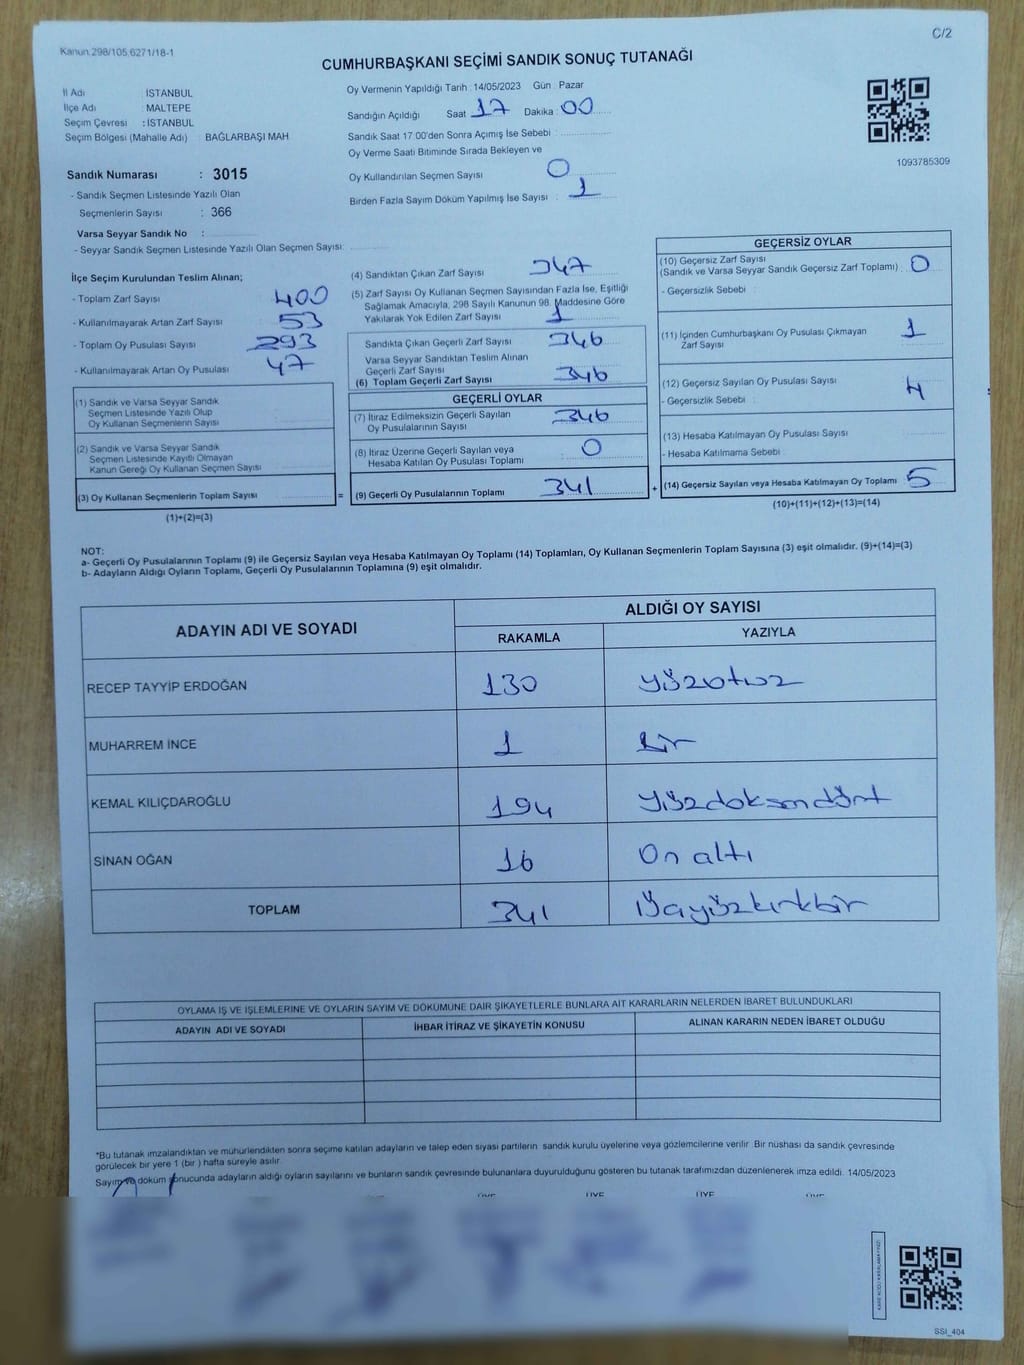 Kanun 298/105,6271/18-1
C/2
CUMHURBAŞKANI SEÇİMİ SANDIK SONUÇ TUTANAĞI
İl Adı : İSTANBUL
İlçe Adı : MALTEPE
Seçim Çevresi : İSTANBUL
Seçim Bölgesi (Mahalle Adı) : BAĞLARBAŞI MAH
Sandık Numarası : 3015
- Sandık Seçmen Listesinde Yazılı Olan
Seçmenlerin Sayısı : 366
Varsa Seyyar Sandık No :
- Seyyar Sandık Seçmen Listesinde Yazılı Olan Seçmen Sayısı:
Oy Vermenin Yapıldığı Tarih : 14/05/2023 Gün : Pazar
Sandığın Açıldığı Saat : 17 Dakika : 00
Sandık Saat 17 00'den Sonra Açımış İse Sebebi :
Oy Verme Saati Bitiminde Sırada Bekleyen ve
Oy Kullandırılan Seçmen Sayısı : 0
Birden Fazla Sayım Döküm Yapılmış İse Sayısı : 1
1093785309
İlçe Seçim Kurulundan Teslim Alınan;
- Toplam Zarf Sayısı 400
- Kullanılmayarak Artan Zarf Sayısı : 53
- Toplam Oy Pusulası Sayısı 293
- Kullanılmayarak Artan Oy Pusulası : 47
(1) Sandık ve Varsa Seyyar Sandık
Seçmen Listesinde Yazılı Olup
Oy Kullanan Seçmenlerin Sayısı :
(2) Sandık ve Varsa Seyyar Sandık
Seçmen Listesinde Kayıtlı Olmayan
Kanun Gereği Oy Kullanan Seçmen Sayısı :
(3) Oy Kullanan Seçmenlerin Toplam Sayısı
(1)+(2)=(3)
=
(4) Sandıktan Çıkan Zarf Sayısı : 347
(5) Zarf Sayısı Oy Kullanan Seçmen Sayısından Fazla İse, Eşitliği
Sağlamak Amacıyla, 298 Sayılı Kanunun 98. Maddesine Göre
Yakılarak Yok Edilen Zarf Sayısı : 1
Sandıkta Çıkan Geçerli Zarf Sayısı : 346
Varsa Seyyar Sandıktan Teslim Alınan
Geçerli Zarf Sayısı
(6) Toplam Geçerli Zarf Sayısı : 346
GEÇERLİ OYLAR
(7) İtiraz Edilmeksizin Geçerli Sayılan
Oy Pusulalarının Sayısı : 346
(8) İtiraz Üzerine Geçerli Sayılan veya
Hesaba Katılan Oy Pusulası Toplamı : 0
(9) Geçerli Oy Pusulalarının Toplamı 341
+
GEÇERSİZ OYLAR
(10) Geçersiz Zarf Sayısı
(Sandık ve Varsa Seyyar Sandık Geçersiz Zarf Toplamı) : 0
- Geçersizlik Sebebi :
(11) İçinden Cumhurbaşkanı Oy Pusulası Çıkmayan
Zarf Sayısı : 1
(12) Geçersiz Sayılan Oy Pusulası Sayısı : 4
- Geçersizlik Sebebi :
(13) Hesaba Katılmayan Oy Pusulası Sayısı
- Hesaba Katılmama Sebebi :
(14) Geçersiz Sayılan veya Hesaba Katılmayan Oy Toplamı : 5
(10)+(11)+(12)+(13)=(14)
NOT:
a- Geçerli Oy Pusulalarının Toplamı (9) ile Geçersiz Sayılan veya Hesaba Katılmayan Oy Toplamı (14) Toplamları, Oy Kullanan Seçmenlerin Toplam Sayısına (3) eşit olmalıdır. (9)+(14)=(3)
b- Adayların Aldığı Oyların Toplamı, Geçerli Oy Pusulalarının Toplamına (9) eşit olmalıdır.
ADAYIN ADI VE SOYADI
ALDIĞI OY SAYISI
RAKAMLA YAZIYLA
RECEP TAYYİP ERDOĞAN 130 yüzotuz
MUHARREM İNCE 1 bir
KEMAL KILIÇDAROĞLU 194 yüzdoksandört
SİNAN OĞAN 16 On altı
TOPLAM 341 Üçyüzkırkbir
OYLAMA İŞ VE İŞLEMLERİNE VE OYLARIN SAYIM VE DÖKÜMÜNE DAİR ŞİKAYETLERLE BUNLARA AİT KARARLARIN NELERDEN İBARET BULUNDUKLARI
ADAYIN ADI VE SOYADI İHBAR İTİRAZ VE ŞİKAYETİN KONUSU ALINAN KARARIN NEDEN İBARET OLDUĞU
*Bu tutanak imzalandıktan ve mühürlendikten sonra seçime katılan adayların ve talep eden siyasi partilerin sandık kurulu üyelerine veya gözlemcilerine verilir. Bir nüshası da sandık çevresinde
görülecek bir yere 1 (bir ) hafta süreyle asılır.
Sayım ve döküm sonucunda adayların aldığı oyların sayılarını ve bunların sandık çevresinde bulunanlara duyurulduğunu gösteren bu tutanak tarafımızdan düzenlenerek imza edildi. 14/05/2023
ÜYE ÜYE ÜYE ÜYE
SSI_404